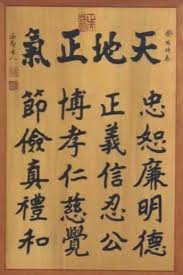 天地正氣
忠恕廉明德
正義信忍公
博孝仁慈覺
節儉真禮和